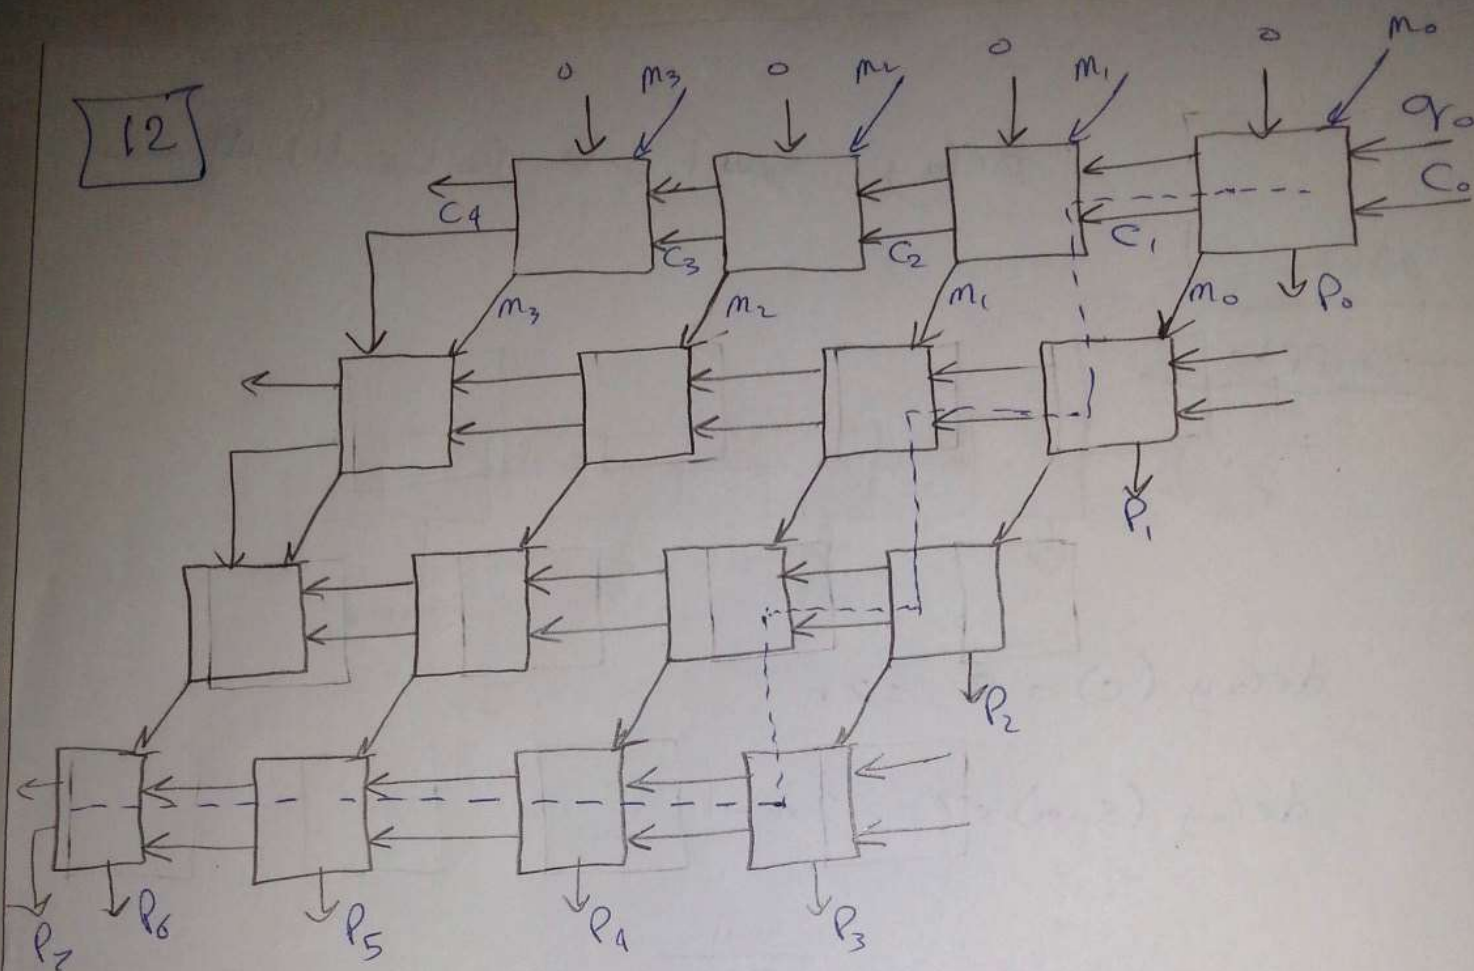 12
0 m3 0 m2 0 m1 0 m0
q0
C0
C4 C3 C2 C1
m3 m2 m1 m0 P0
P1
P2
P7 P6 P5 P4 P3